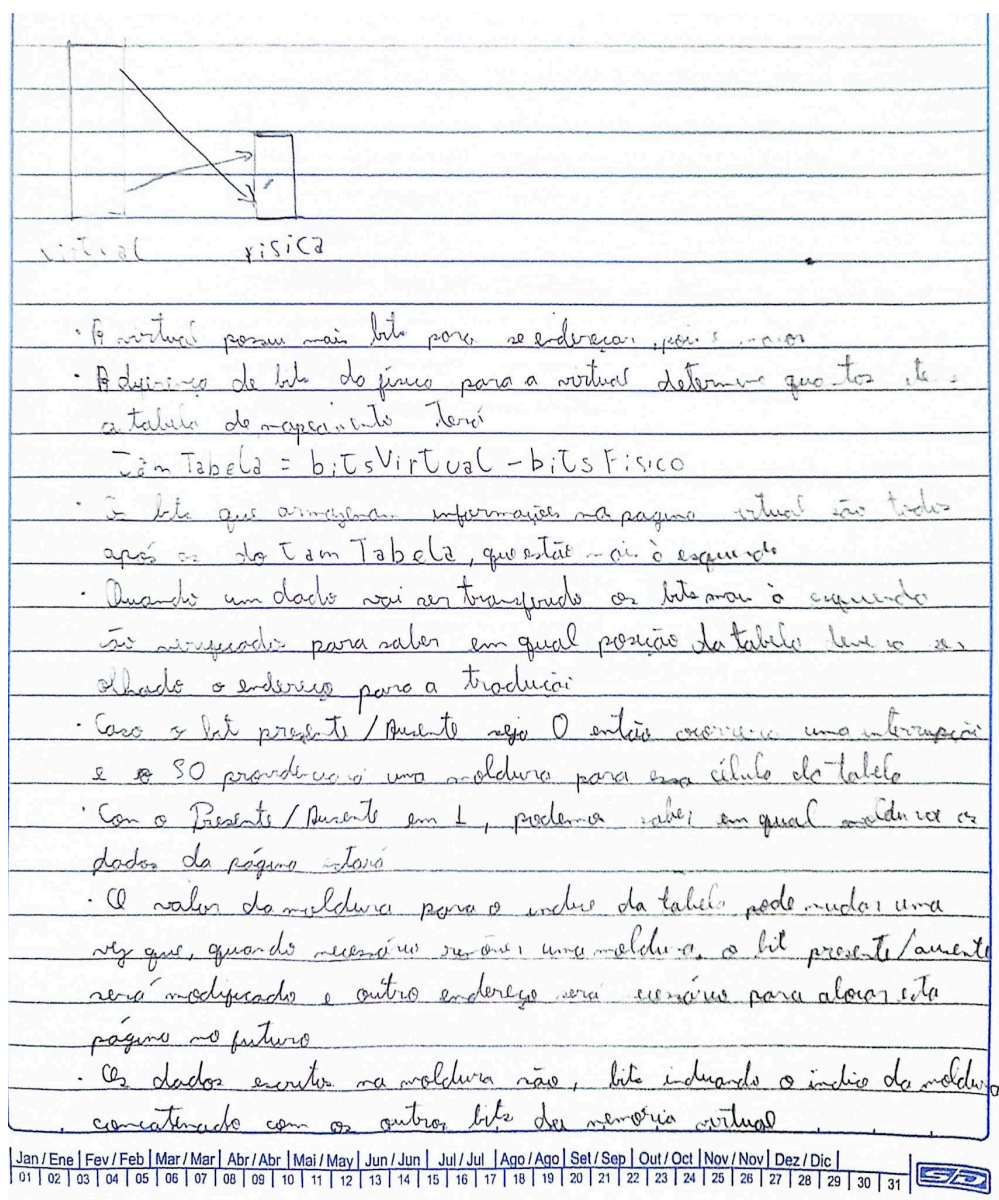 virtual física
· A virtual possui mais bits para se endereçar, pois é maior
· A diferença de bits do físico para a virtual determina quantos
a tabela de mapeamento terá
Tam Tabela = bitsVirtual - bitsFisico
· Os bits que armazenam informações na pagina virtual são todos
após os do Tam Tabela, que estão mais à esquerda
· Quando um dado vai ser transferido os bits mais à esquerda
são verificados para saber em qual posição da tabela deverá ser
olhado o endereço para a tradução
· Caso o bit presente/Ausente seja 0 então ocorrerá uma interrupção
e o SO providenciará uma moldura para essa célula da tabela
· Com o Presente/Ausente em 1, podemos saber em qual moldura os
dados da página estará
· O valor da moldura para o indice da tabela pode mudar uma
vez que, quando necessário remover uma moldura, o bit presente/ausente
será modificado e outro endereço será necessário para alocar esta
página no futuro
· Os dados escritos na moldura são, bits indicando o indice da moldura
concatenado com os outros bits da memória virtual
Jan / Ene | Fev / Feb | Mar / Mar | Abr / Abr | Mai / May | Jun / Jun | Jul / Jul | Ago / Ago | Set / Sep | Out / Oct | Nov / Nov | Dez / Dic |
01 | 02 | 03 | 04 | 05 | 06 | 07 | 08 | 09 | 10 | 11 | 12 | 13 | 14 | 15 | 16 | 17 | 18 | 19 | 20 | 21 | 22 | 23 | 24 | 25 | 26 | 27 | 28 | 29 | 30 | 31